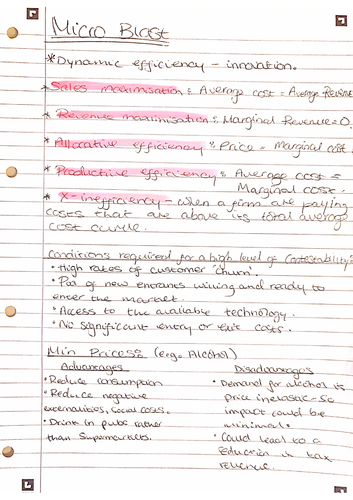 Micro Blast
* Dynamic efficiency - innovation.
* Sales maximisation : Average cost = Average Revenue
* Revenue maximisation : Marginal Revenue = 0.
* Allocative efficiency : Price = Marginal cost
* Productive efficiency : Average cost =
Marginal cost.
* X-inefficiency - when a firm are paying
costs that are above its total average
cost curve.
Conditions required for a high level of Contestability:
• High rates of customer churn.
• Pool of new entrants willing and ready to
enter the market.
• Access to the available technology.
• No significant entry or exit costs.
Min Prices: (e.g. Alcohol)
Advantages
• Reduce consumption
• Reduce negative
externalities, social costs.
• Drink in pubs rather
than Supermarkets.
Disadvantages
• Demand for alcohol is
price inelastic - so
impact could be
minimal.
• Could lead to a
reduction in tax
revenue.